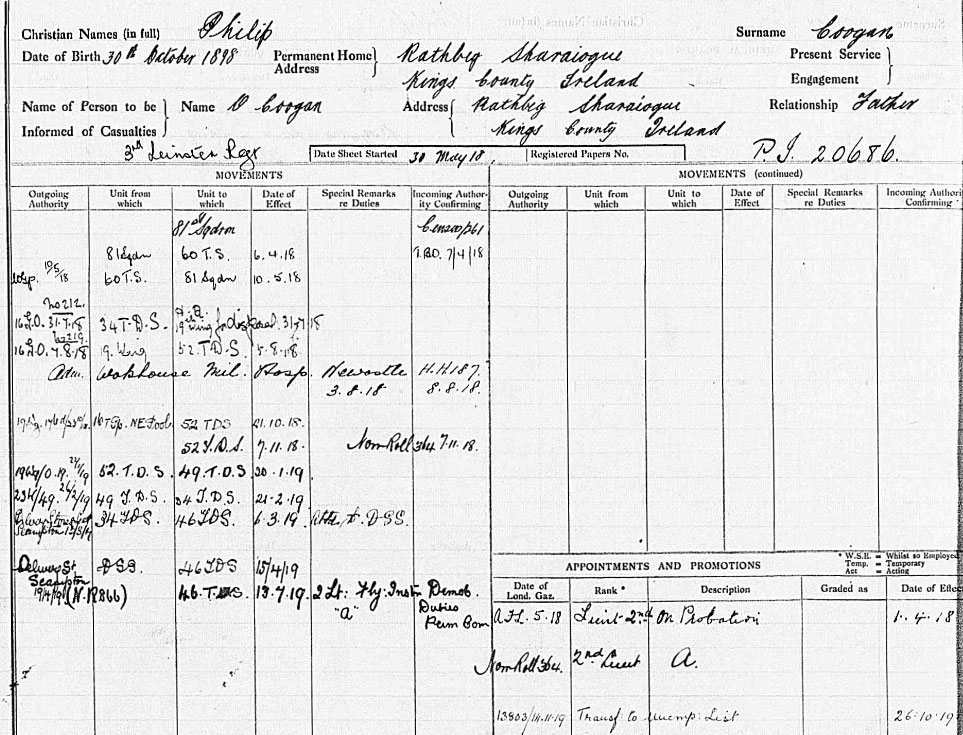 Christian Names (in full) Philip Surname Coogan
Date of Birth 30th October 1898 Permanent Home Address Rathbeg Sharaiogue Present Service
Kings County Ireland Engagement
Name of Person to be Informed of Casualties Name D Coogan Address Rathbig Sharaiogue Relationship Father
Kings County Ireland
3rd Leinster Regt Date Sheet Started 30 May 18. Registered Papers No. P.I. 20686.
MOVEMENTS
Outgoing Authority Unit from which Unit to which Date of Effect Special Remarks re Duties Incoming Authority Confirming
81st Sqdron
81 Sqdn 60 T.S. 6.4.18 7/4/18
10/5/18 60 T.S. 81 Sqdn 10.5.18
No 212.
31.7.18 34 T.D.S. 19th Wing for disposal 31.7.18
No 219.
7.8.18 19. Wing 52. T.D.S. 5.8.18
Adm. Mil. Hosp. Newcastle H.H 187.
3.8.18 8.8.18.
52 TDS 21.10.18.
52 T.D.S. 7.11.18. Nom Roll 364 7.11.18.
52. T.D.S. 49. T.D.S. 20.1.19
49 T.D.S. 34 T.D.S. 21.2.19
Scampton 34 TDS 46 TDS. 6.3.19 D.S.S.
DSS. 46 TDS 15/4/19
Scampton
19/4/19 46. T.D.S. 13.7.19 2 Lt: Fly: Instr. Demob.
"A" Duties
Perm Com
MOVEMENTS (continued)
Outgoing Authority Unit from which Unit to which Date of Effect Special Remarks re Duties Incoming Authori Confirming
* W.S.E. = Whilst so Employed
Temp. = Temporary
Act = Acting
APPOINTMENTS AND PROMOTIONS
Date of Lond. Gaz. Rank * Description Graded as Date of Effec
A.F.L. 5.18 Lieut 2nd On Probation 1.4.18
Nom Roll 364. 2nd Lieut A.
13803/14.11.19 Transf: to Unemp: List 26.10.19